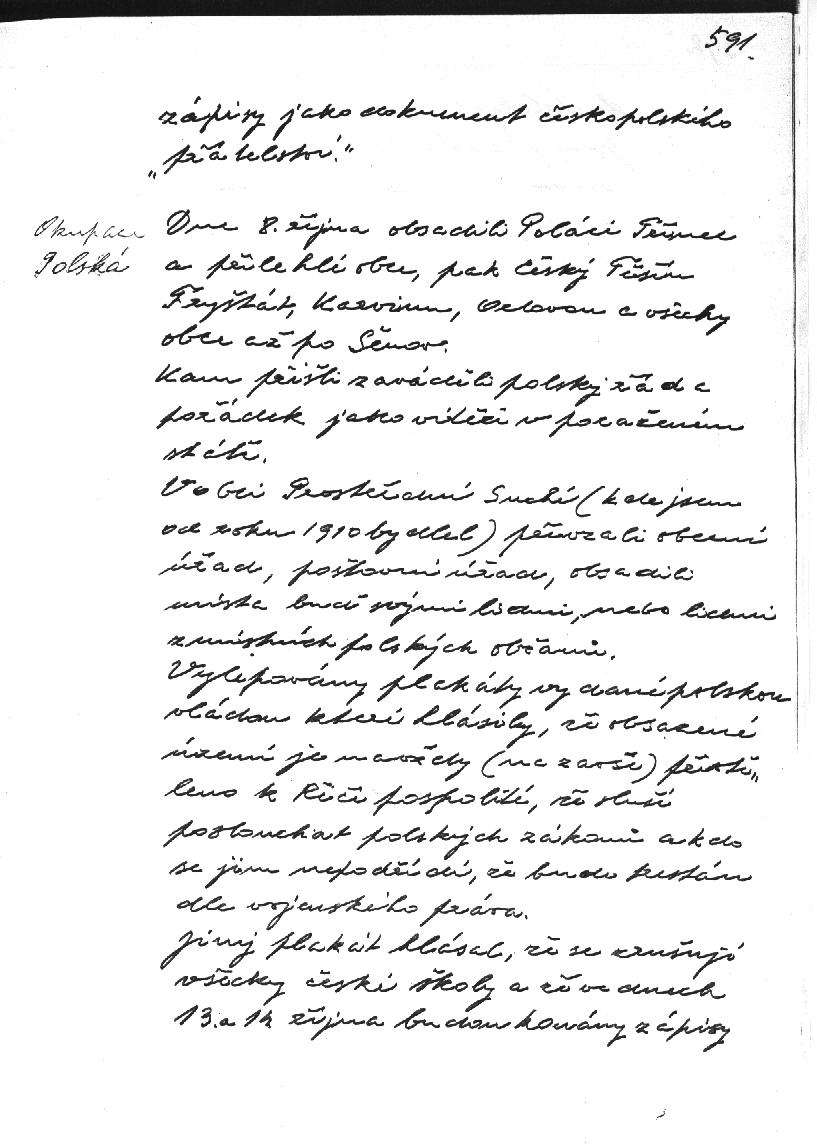 591.
zápisy jako dokument českopolského
„přátelství."
Okupace
Polská
Dne 8. října obsadili Poláci Třinec
a přilehlé obce, pak Český Těšín
Fryštát, Karvinnu, Orlovou a všecky
obce až po Šenov.
Kam přišli zaváděli polský řád a
pořádek jako vítězi v poraženém
státě.
V obci Prostřední Suché (kde jsem
od roku 1910 bydlel) převzali obecní
úřad, poštovní úřad, obsadili
místa buď svými lidmi, nebo lidmi
z místních polských občanů.
Vylepovány plakáty vydané polskou
vládou které hlásily, že obsazené
území je navždy (na zavše) přivtě„
leno k Říči pospolité, že sluší
poslouchat polských zákonů a kdo
se jim nepodřídí, že bude trestán
dle vojenského práva.
Jiný plakát hlásal, že se zrušují
všecky české školy a že ve dnech
13. a 14 října budou konány zápisy